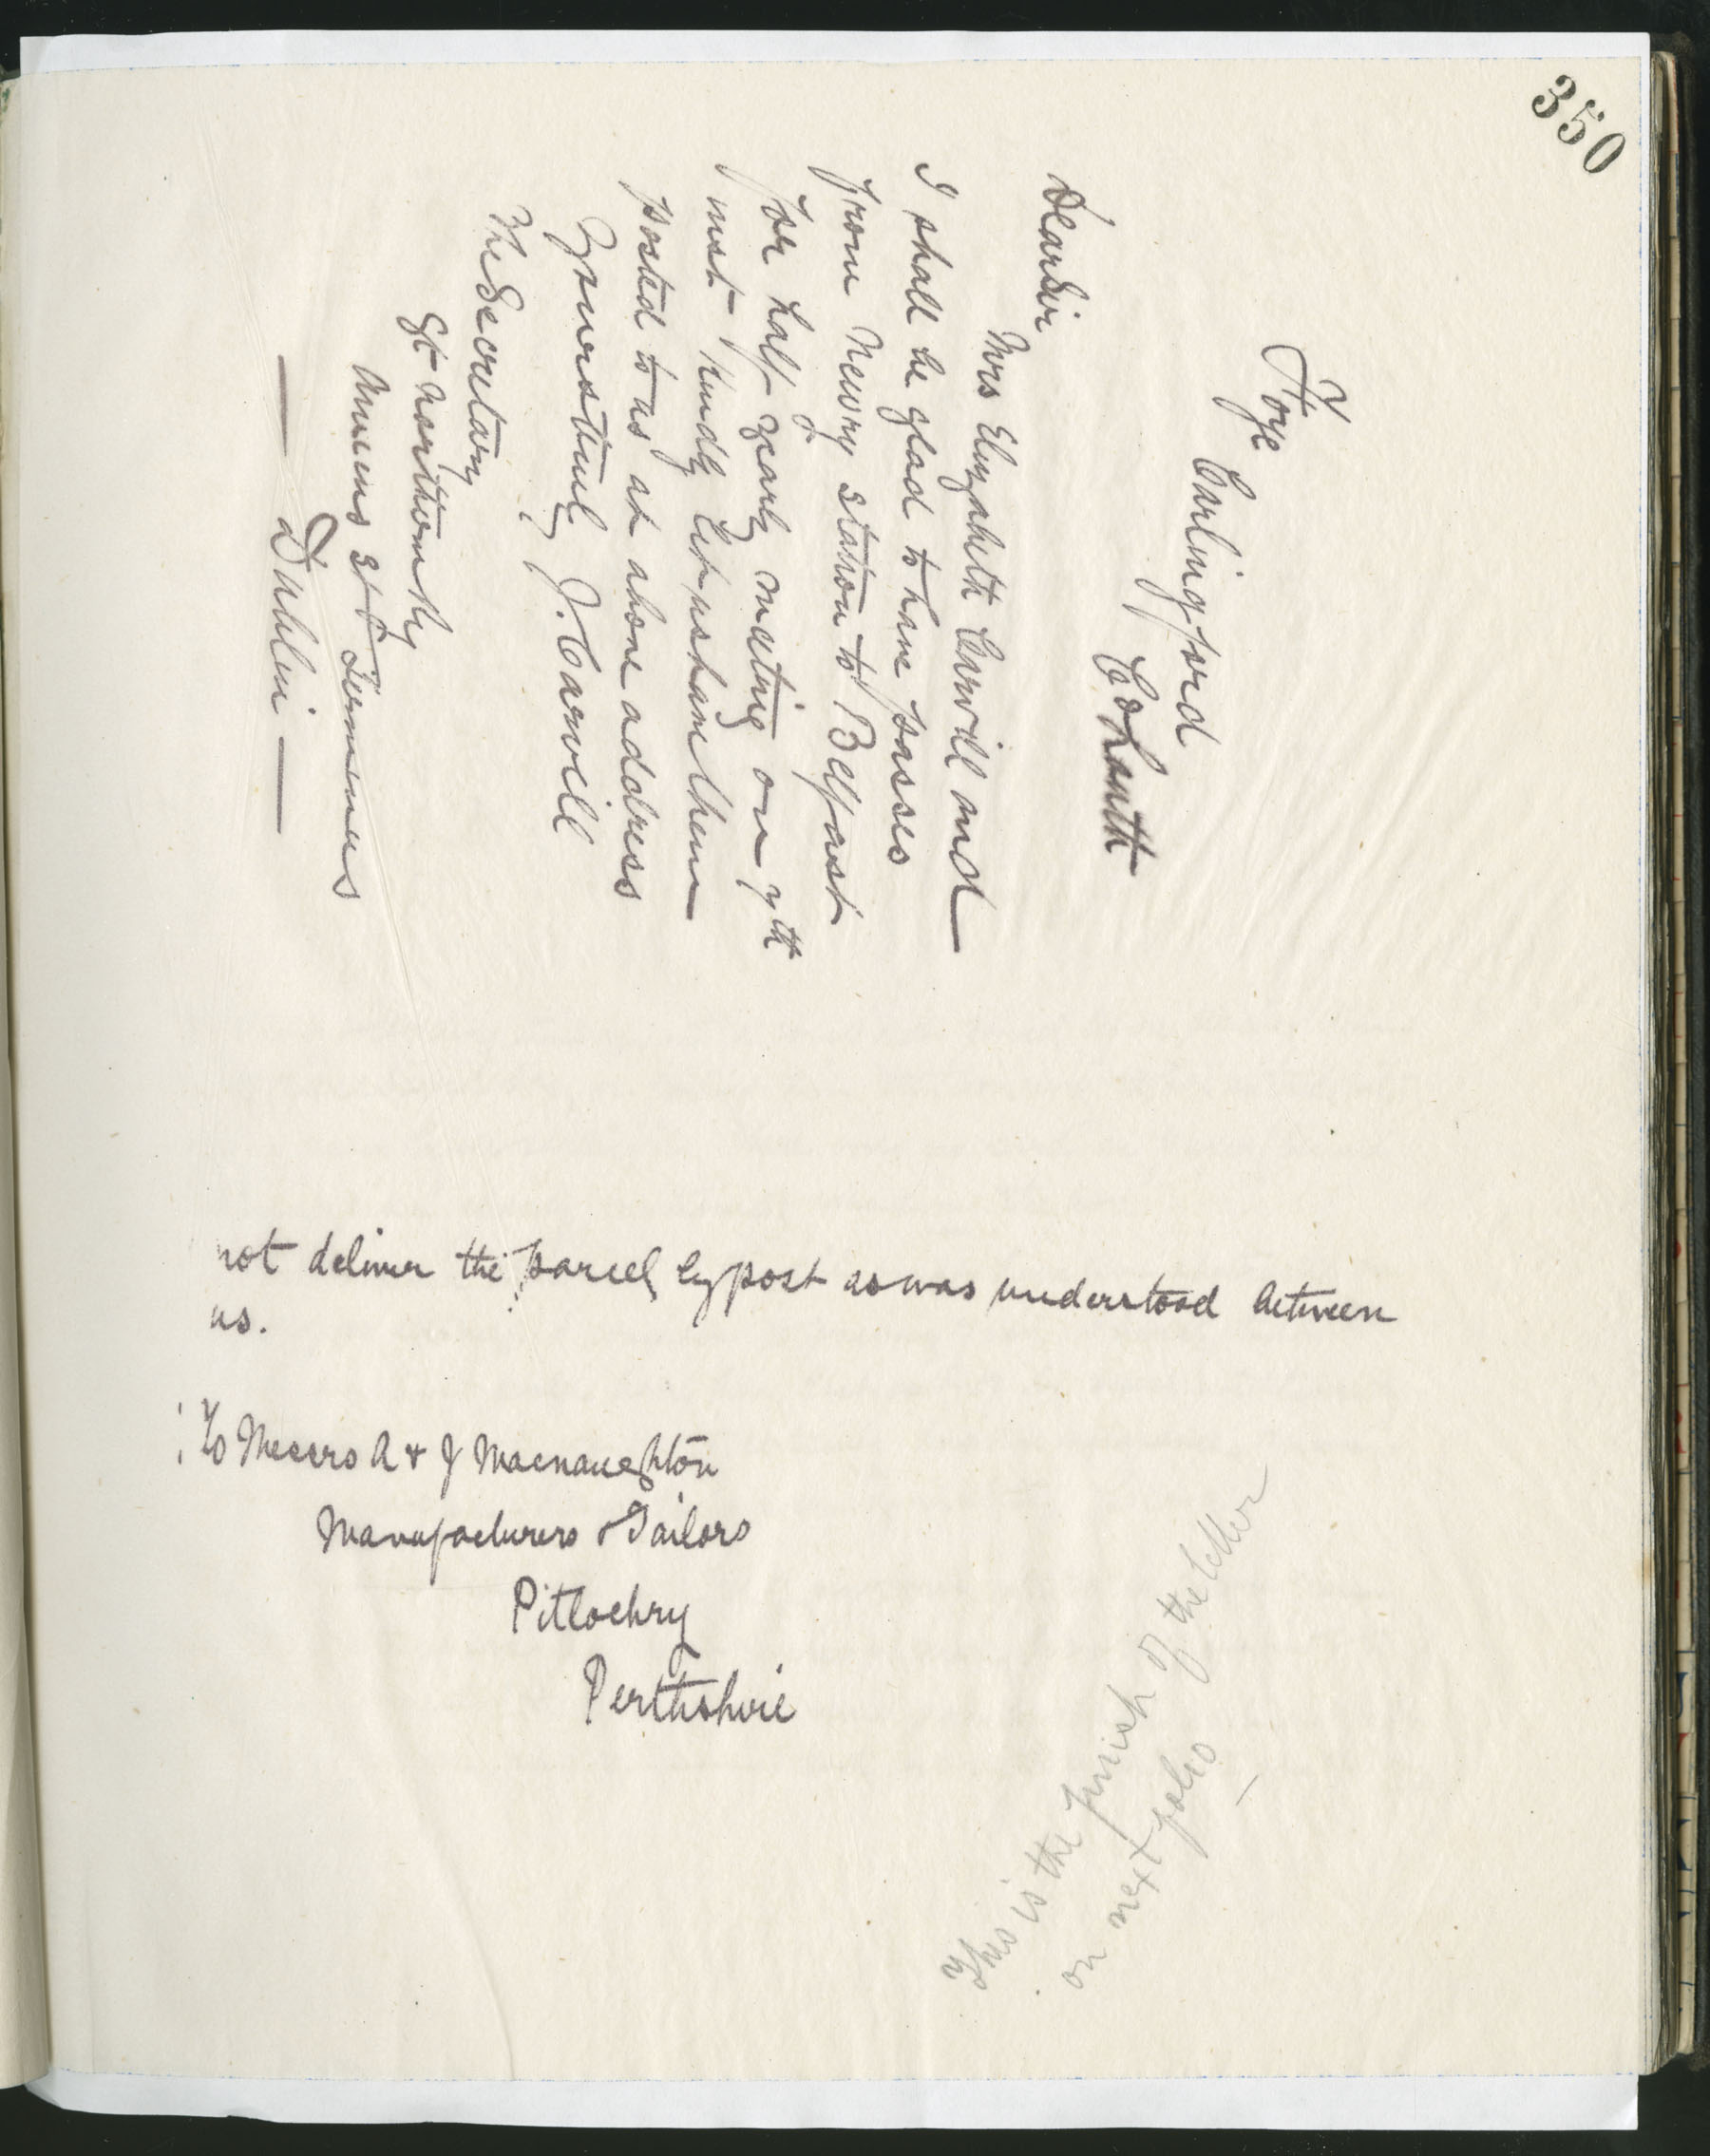 350
Foye
Carlingford
Co Louth
Dear Sir
Mrs Elizabeth Carvill and
I shall be glad to have passes
from Newry station to Belfast
for half yearly meeting on 7th
inst kindly let us have them
posted to us at above address
Yours truly J. Carvill
The Secretary
Gt Northern Ry
Amiens St Terminus
Dublin
not deliver the parcel by post as was understood between
us.
To Messrs A & J Macnaughton
Manufacturers & Tailors
Pitlochry
Perthshire
This is the finish of the letter
on next folio